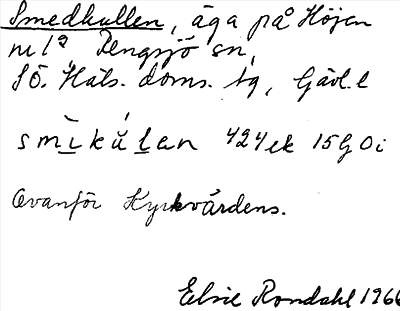 Smedkullen, äga på Höjen
nr 1² Rengsjö sn,
SÖ. Häls. doms. tg, Gävl. l
smìkúlen 424ek 15G0i
Ovanför Kyrkvärdens.
Elsie Rondahl 1966